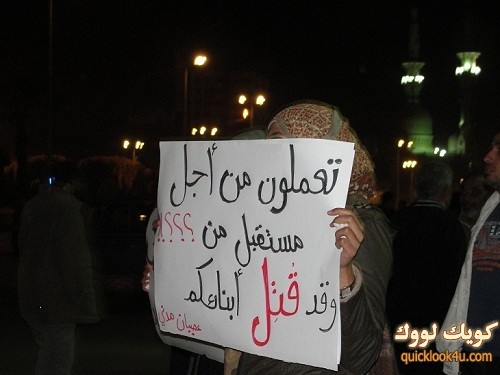 تعملون من أجل
مستقبل من ؟؟؟؟!
وقد قُتِل أبناءكم
عصيان مدني
كويك لووك
quicklook4u.com